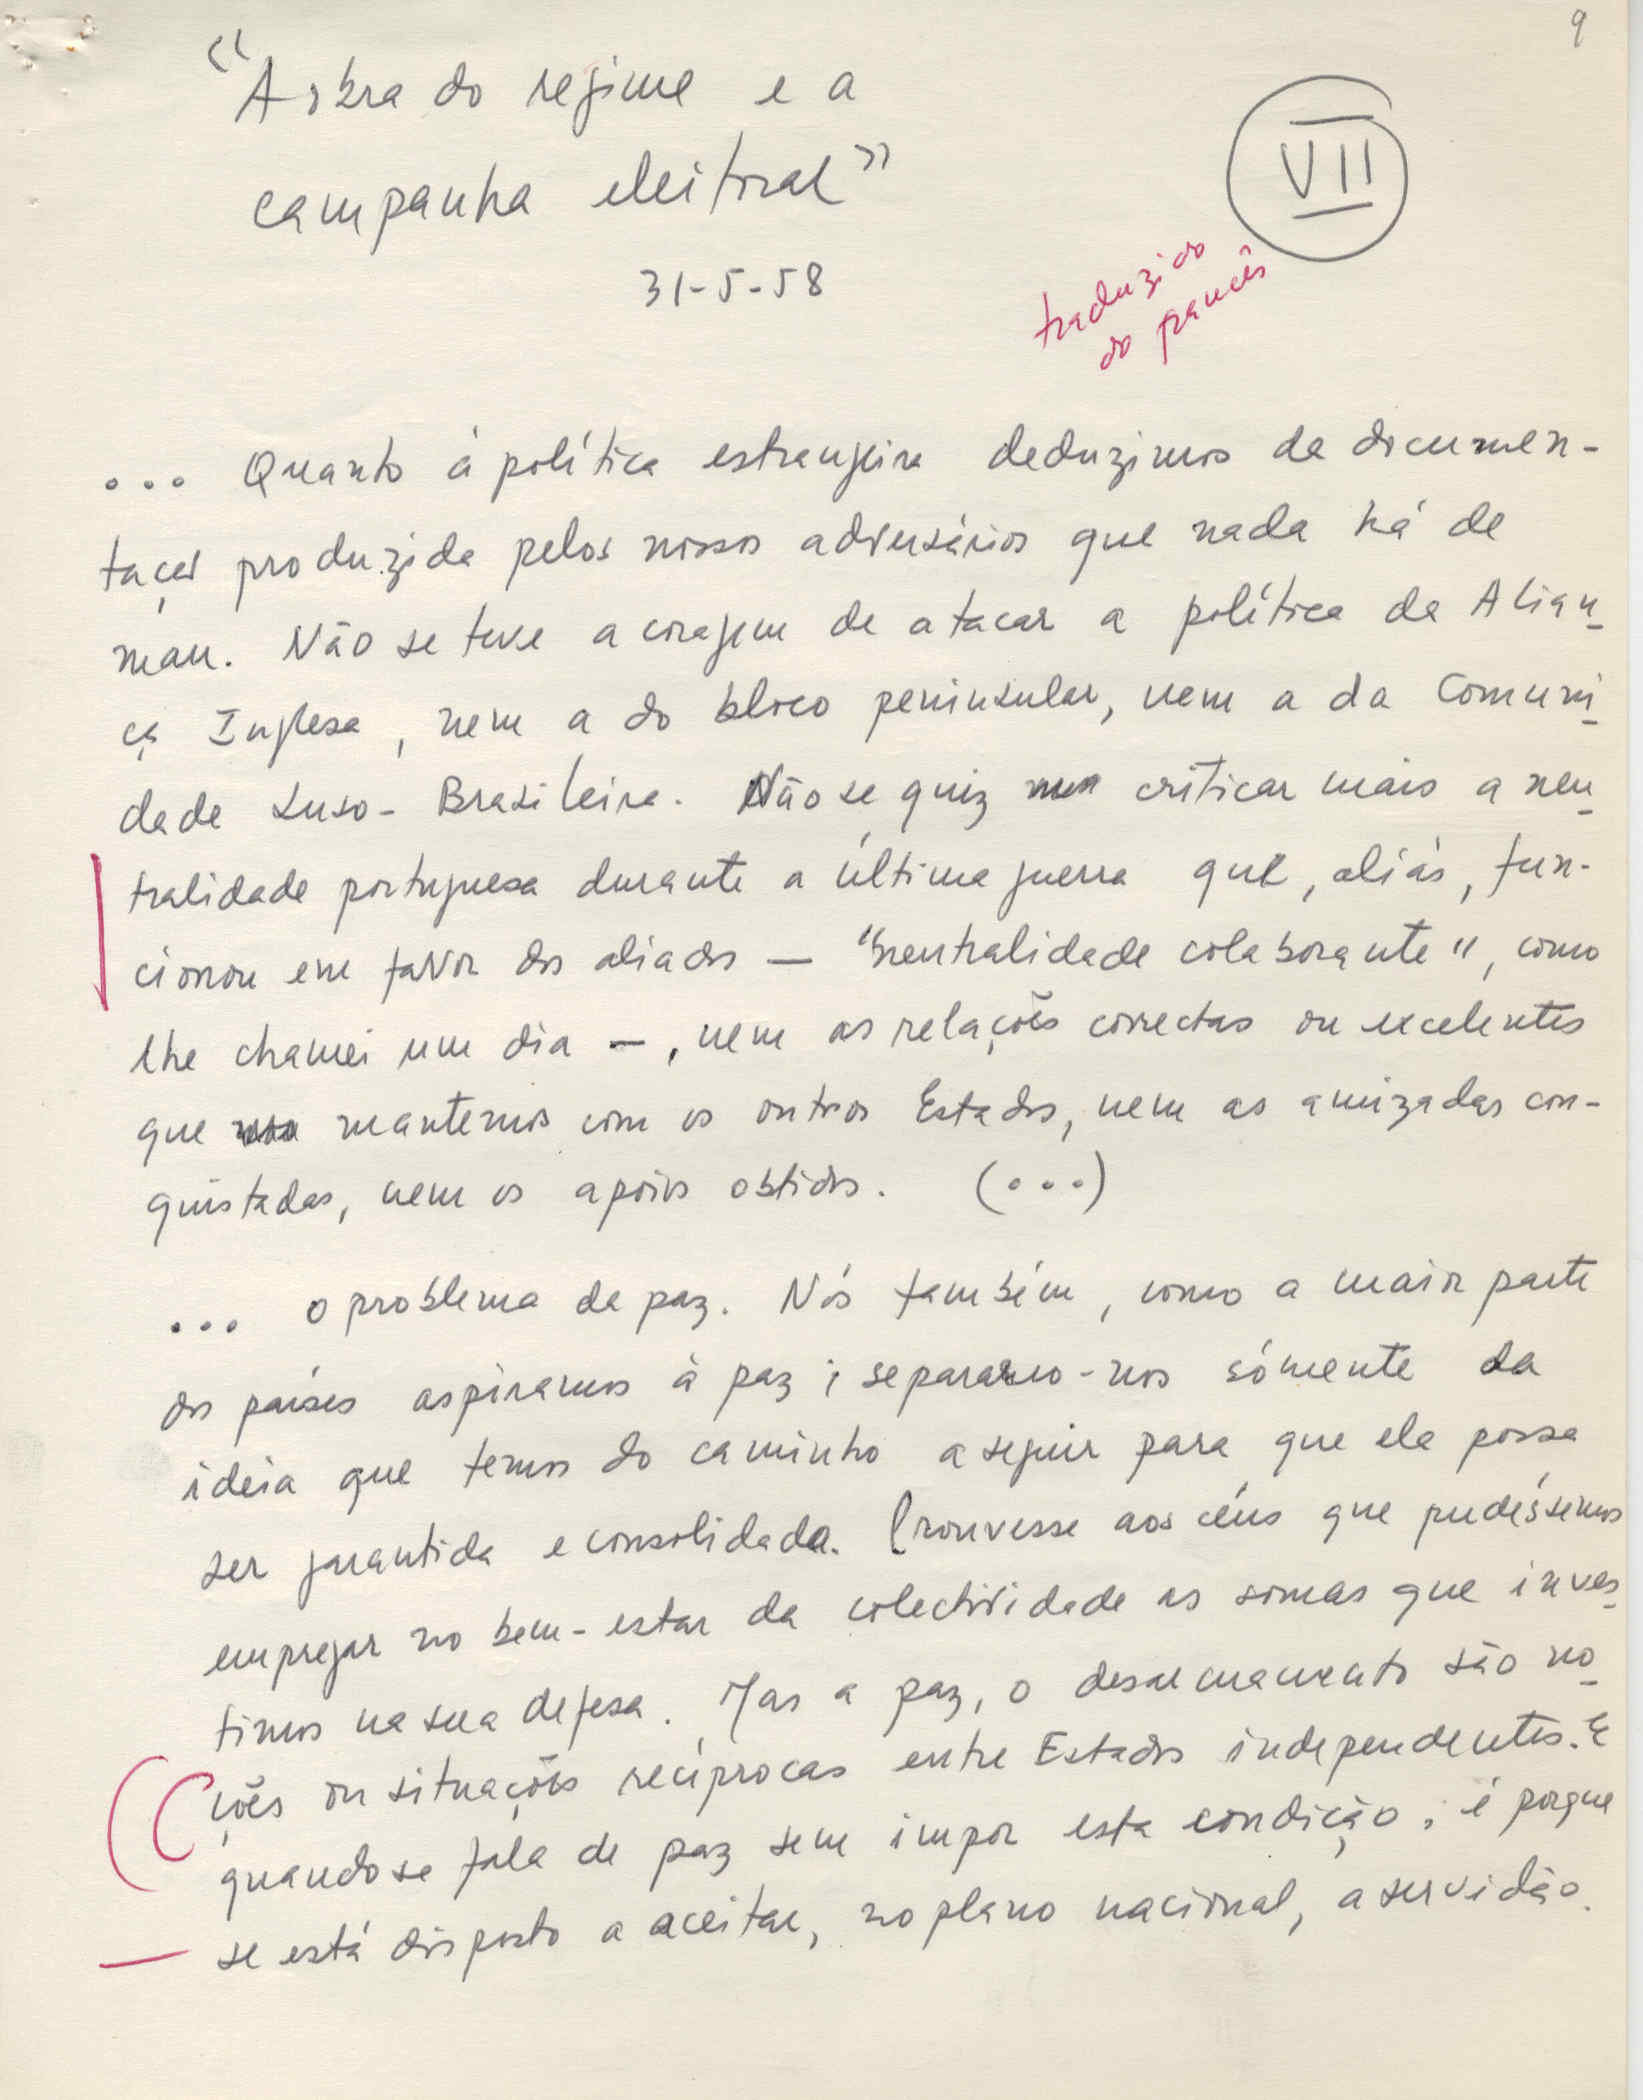 9
"A obra do regime e a
campanha eleitoral"
VII
31-5-58
traduzido
do francês
... Quanto à política estrangeira deduzimos da documen-
tação produzida pelos nossos adversários que nada há de
mau. Não se teve a coragem de atacar a política da Alian-
ça Inglesa, nem a do bloco peninsular, nem a da Comuni-
dade Luso-Brasileira. Não se quiz criticar mais a neu-
tralidade portuguesa durante a última guerra que, aliás, fun-
cionou em favor dos aliados — "neutralidade colaborante", como
lhe chamei um dia —, nem as relações correctas ou excelentes
que mantemos com os outros Estados, nem as amizadas con-
quistadas, nem os apoios obtidos. (...)
... o problema da paz. Nós também, como a maior parte
dos países aspiramos à paz; separamo-nos sómente da
ideia que temos do caminho a seguir para que ela possa
ser garantida e consolidada. Prouvesse aos céus que pudéssemos
empregar no bem-estar da colectividade as somas que inves-
timos na sua defesa. Mas a paz, o desarmamento são no-
ções ou situações recíprocas entre Estados independentes. E
quando se fala de paz sem impor esta condição, é porque
se está disposto a aceitar, no plano nacional, a servidão.